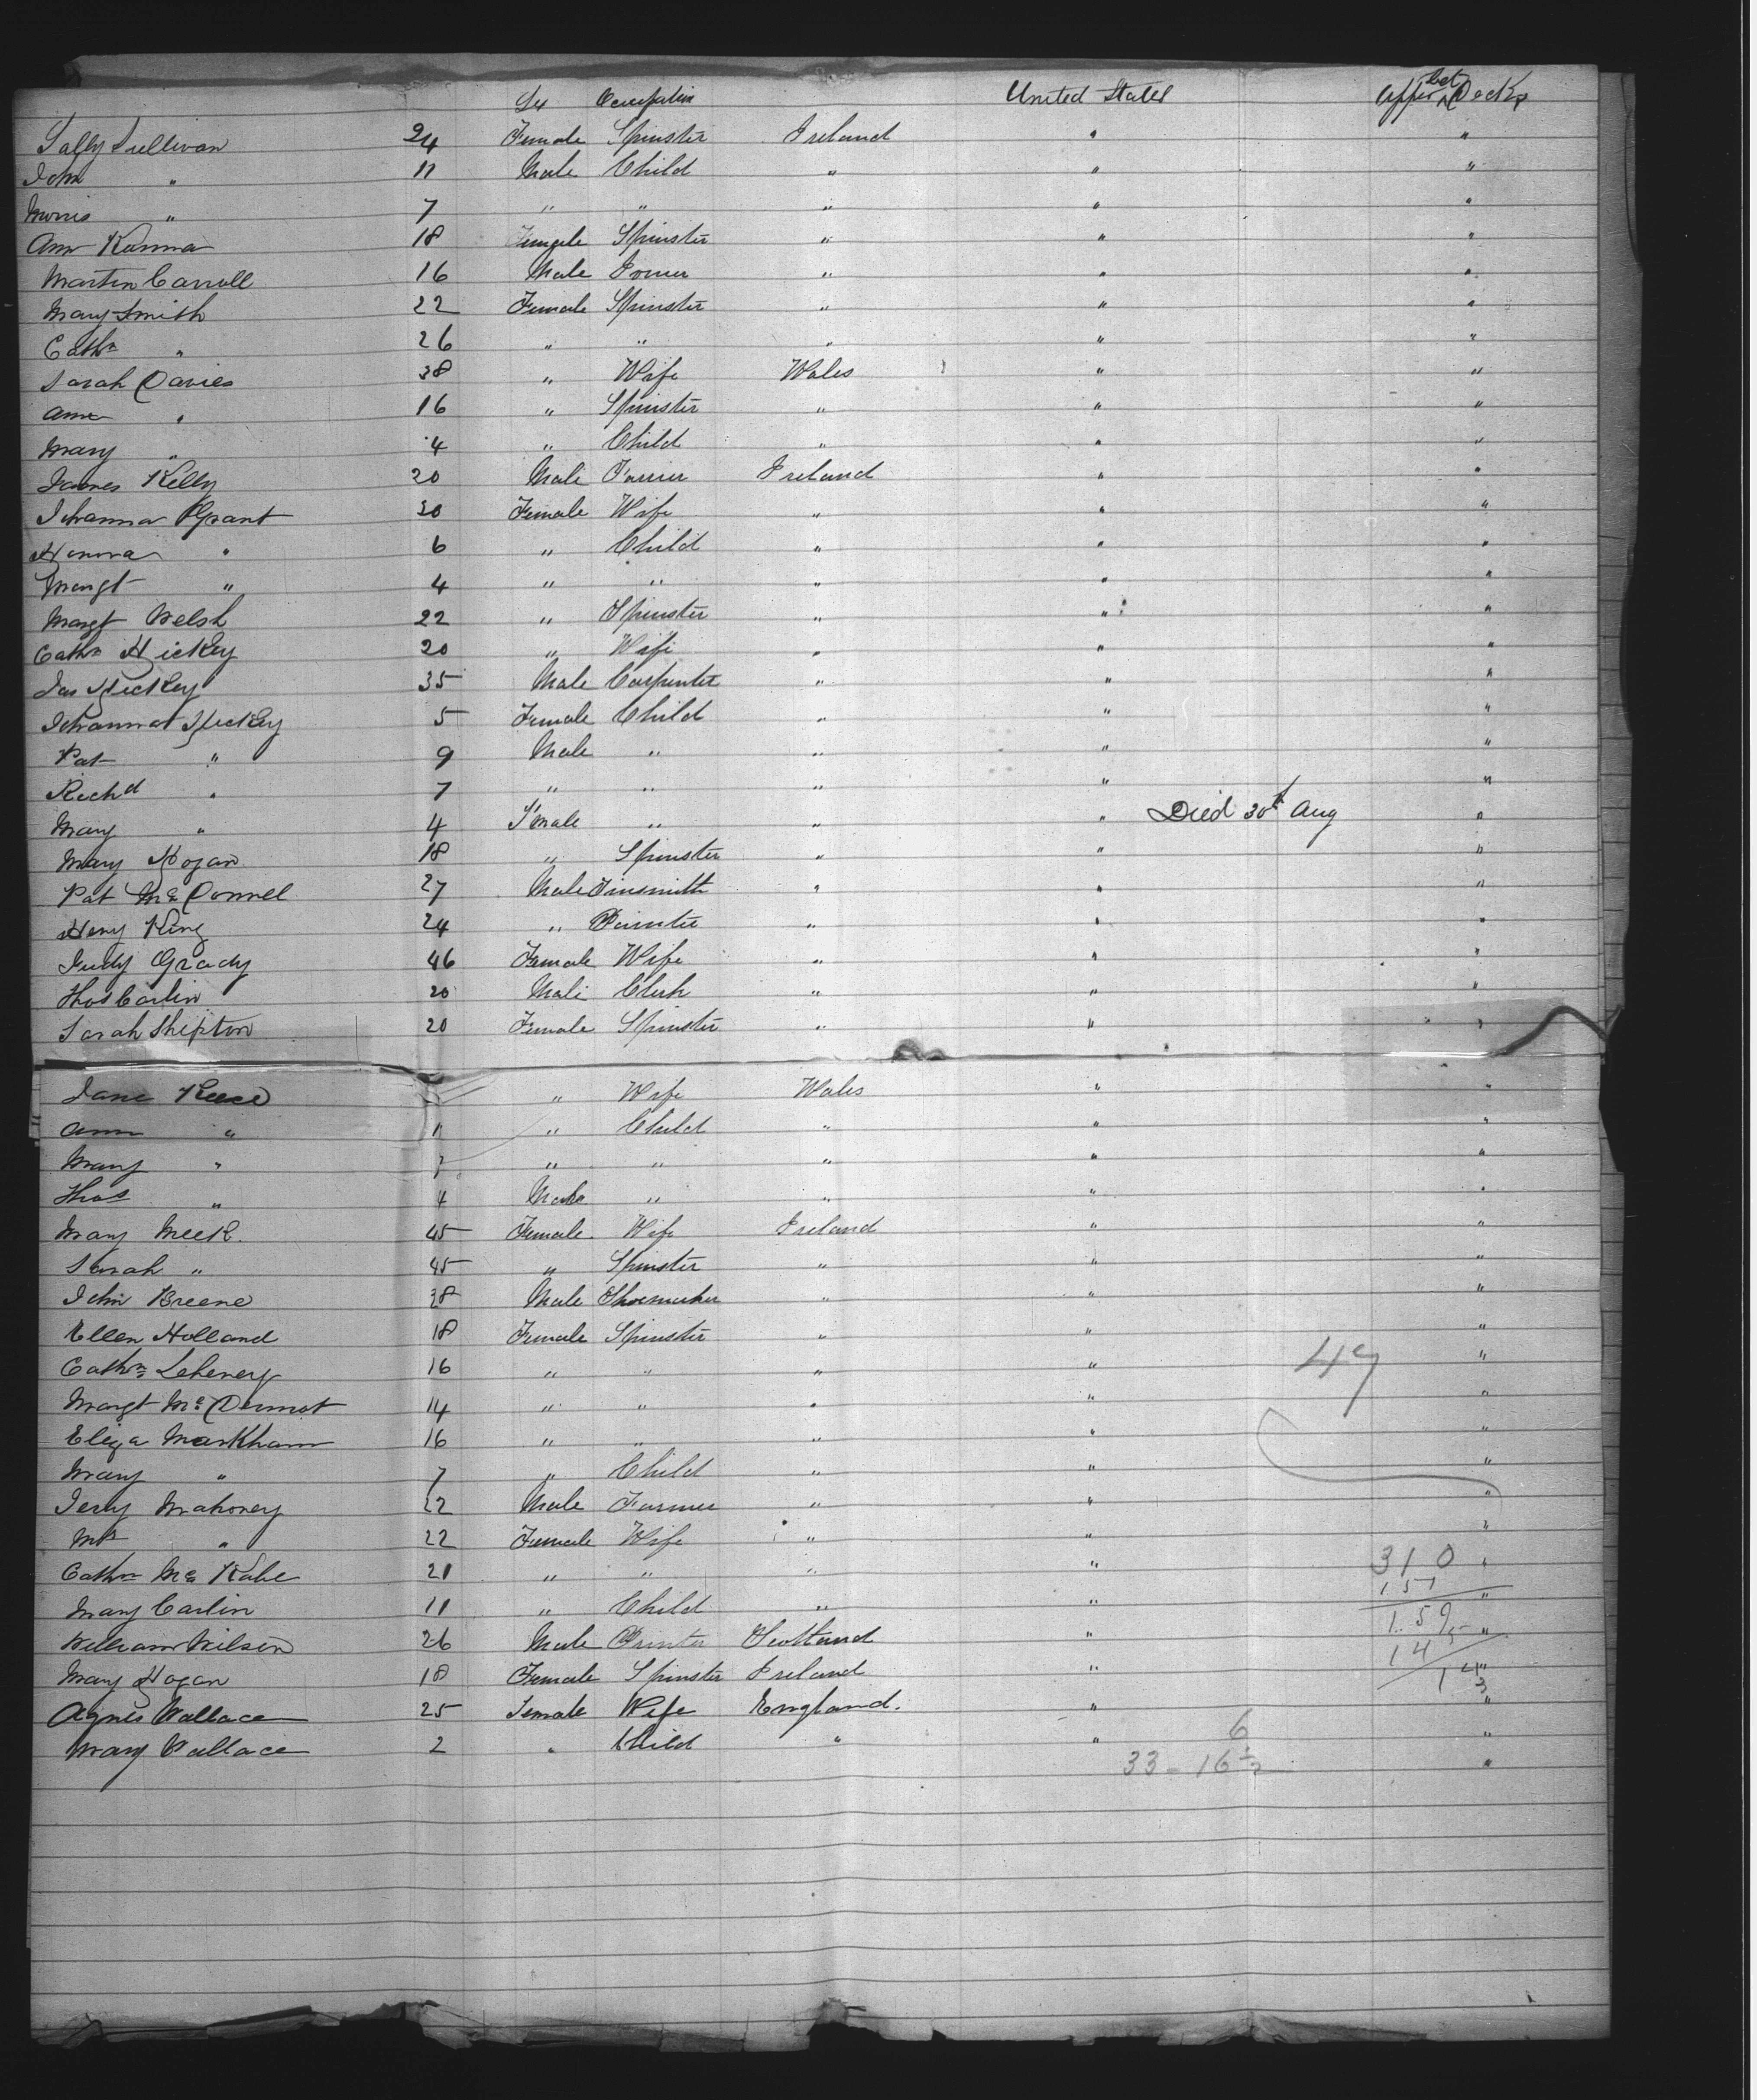 Sex Occupation United States Upper bet Decks
Sally Sullivan 24 Female Spinster Ireland " "
John " 11 Male Child " " "
Morris " 7 " " " " "
Ann 18 Female Spinster " " "
Martin Carroll 16 Male " " "
Mary Smith 22 Female Spinster " " "
Cathn " 26 " " " " "
Sarah Davies 38 " Wife Wales " "
Ann " 16 " Spinster " " "
Mary " 4 " Child " " "
James Kelly 20 Male Farrier Ireland " "
Johanna Grant 30 Female Wife " " "
Honora " 6 " Child " " "
Margt " 4 " " " " "
Margt Welsh 22 " Spinster " " "
Cathn Hickey 20 " Wife " " "
Jas Hickey 35 Male Carpenter " " "
Johannat Hickey 5 Female Child " " "
Pat " 9 Male " " " "
Richd " 7 " " " " "
Mary " 4 F'male " " " Died 30th Aug "
Mary Hogan 18 " Spinster " " "
Pat McDonnel 27 Male Tinsmith " " "
Heny King 24 " Painter " " "
Judy Grady 46 Female Wife " " "
Thos Carlin 20 Male Clerk " " "
Sarah Shipton 20 Female Spinster " " "
Jane Reece " Wife Wales " "
Ann " 11 " Child " " "
Mary " 7 " " " " "
Thos " 4 Male " " " "
Mary Meek. 45 Female Wife Ireland " "
Sarah " 45 " Spinster " " "
John Breene 38 Male Shoemaker " " "
Ellen Holland 18 Female Spinster " " "
Cathn Leheney 16 " " " " 49 "
Margt McDermot 14 " " " " "
Eliza Markham 16 " " " " "
Mary " 7 " Child " " "
Jerry Mahoney 22 Male Farmer " " "
Mrs " 22 Female Wife " " "
Cathn McKabe 21 " " " " 310 "
Mary Carlin 11 " Child " " 151 "
William Wilson 26 Male Printer Scotland " "
Mary Hogan 18 Female Spinster Ireland " "
Agnes Wallace 25 Female Wife England. " "
Mary Wallace 2 " Child " " 6 "
33 - 16 1/2 "